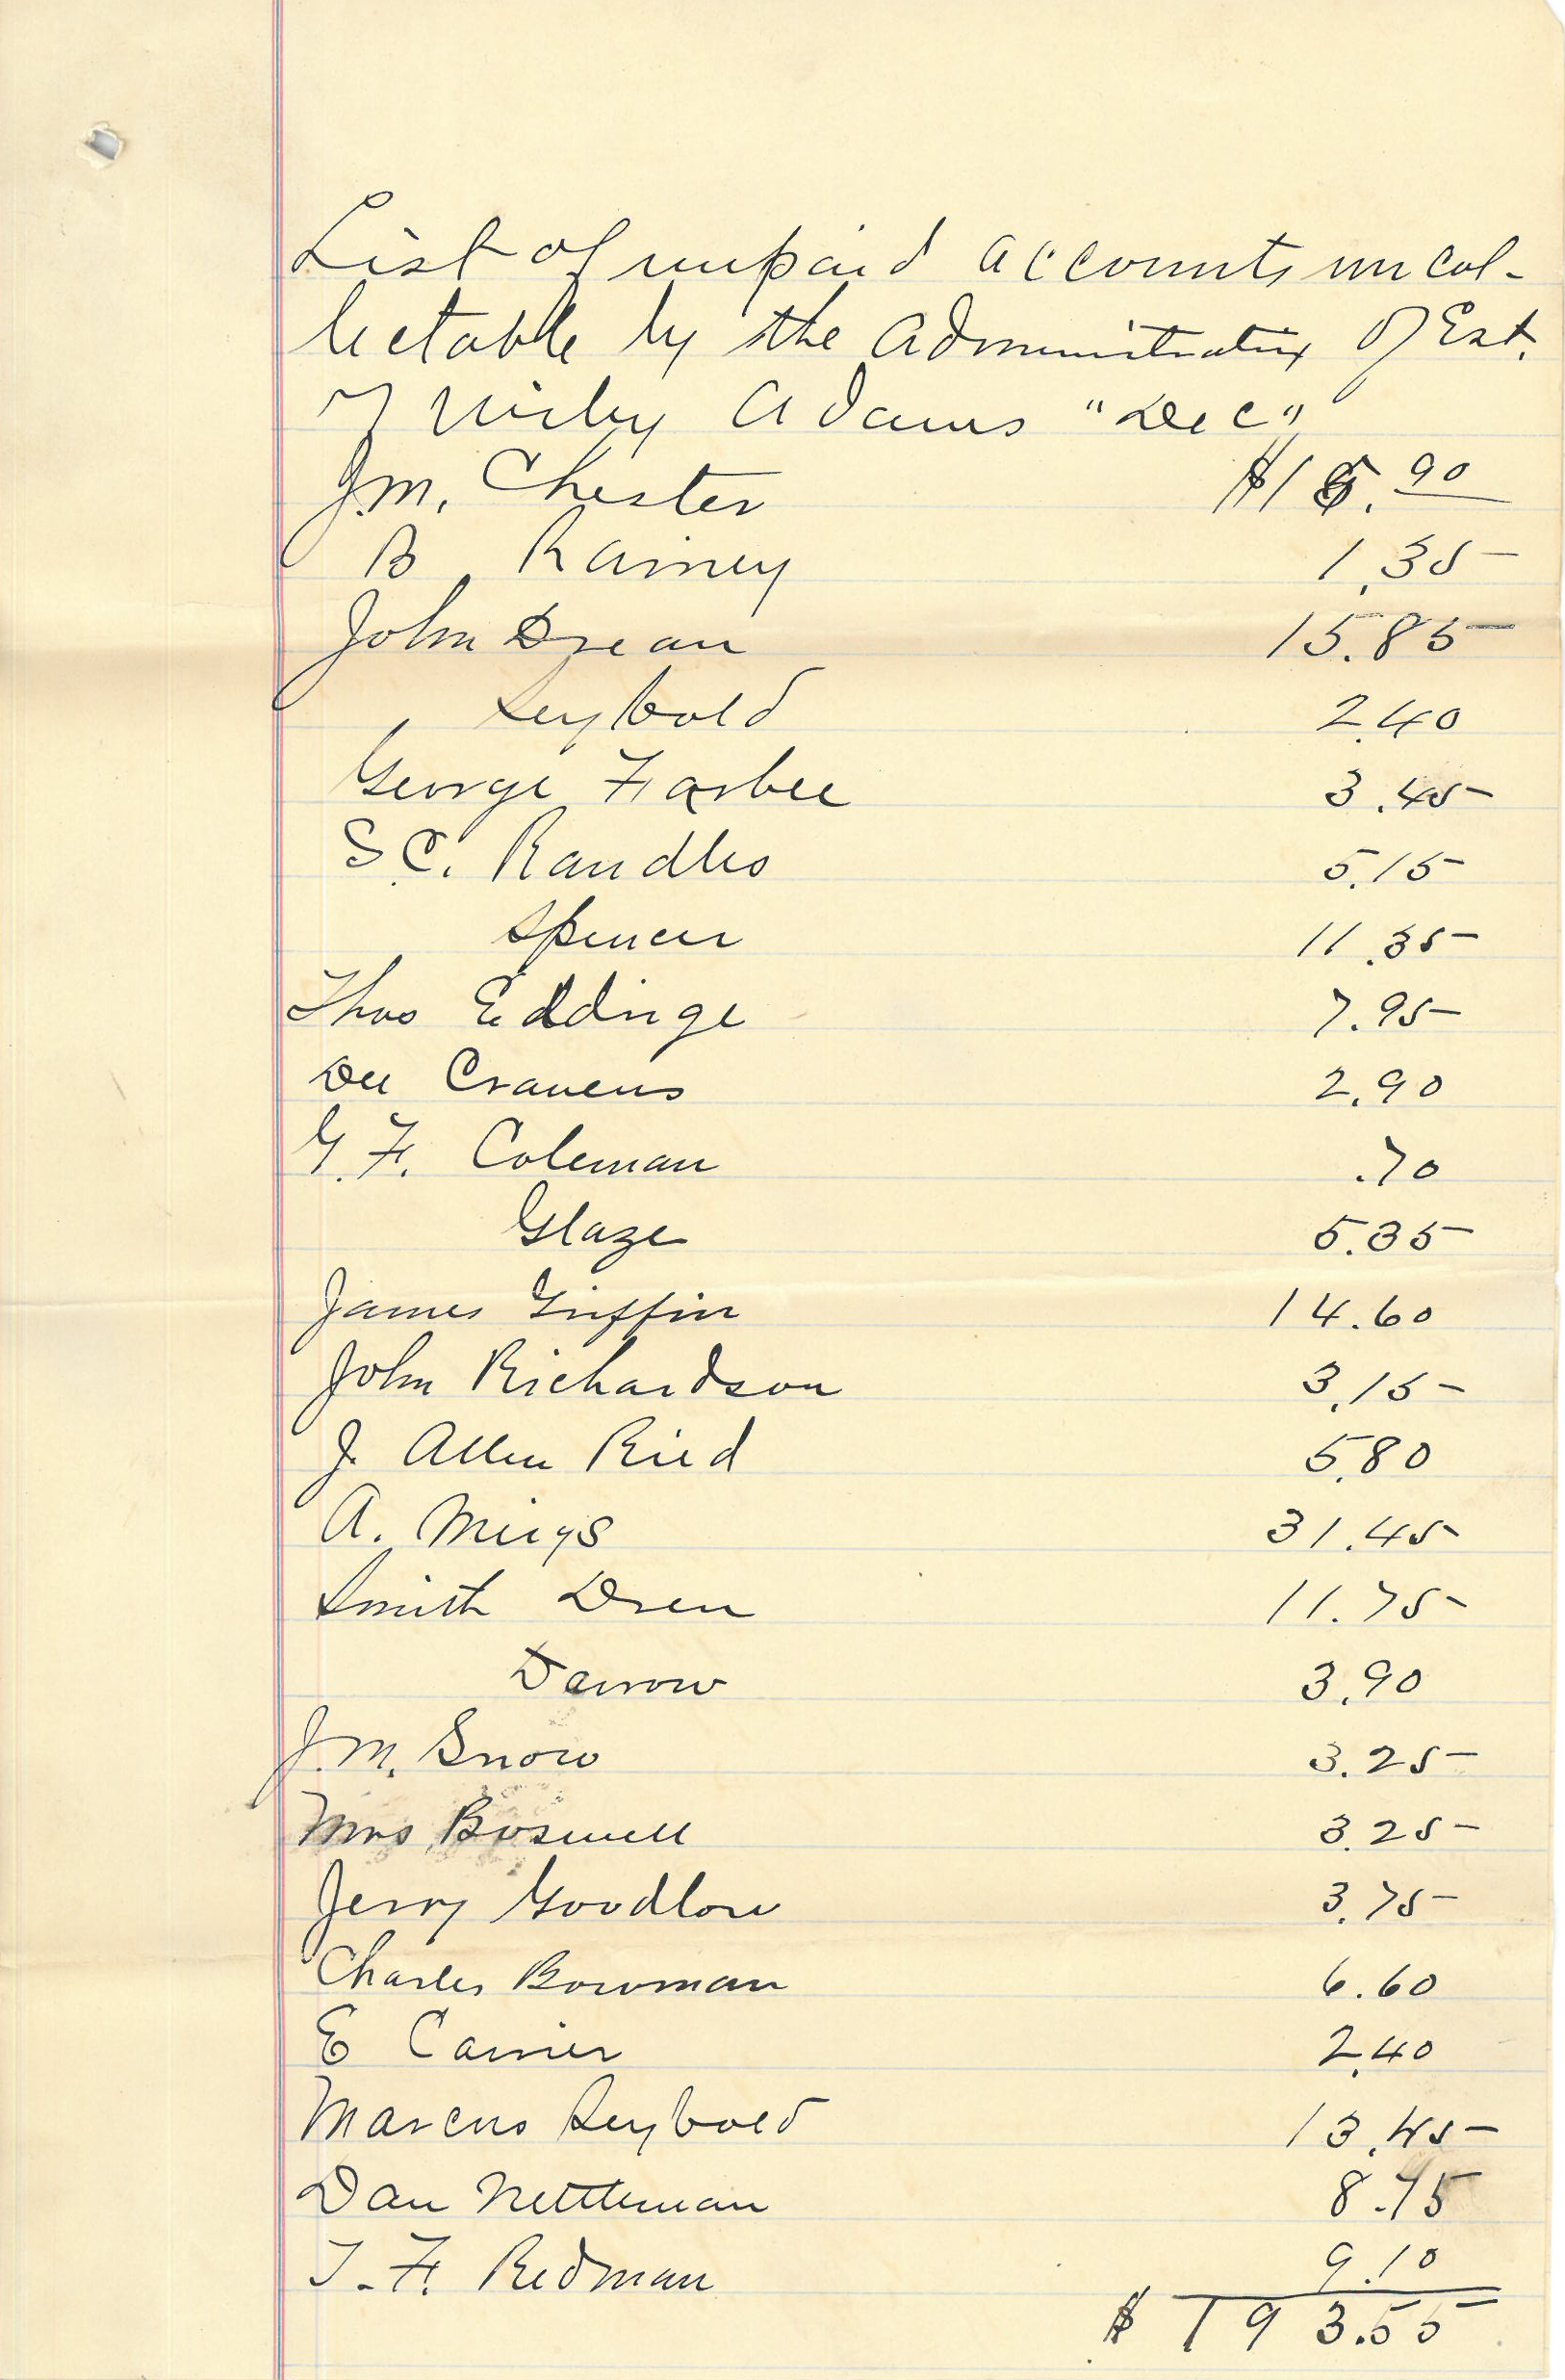 List of unpaid accounts uncol-
lectable by the Administratrix of Est.
of Wirby Adams "Dec"
J.M. Chester $15.90
B Rainey 1.35
John Drean 15.85
Seybold 2.40
George Farbee 3.45
S.C. Randles 5.15
Spencer 11.35
Thos Eddinge 7.95
Dee Cravens 2.90
G.F. Coleman .70
Glaze 5.35
James Griffin 14.60
John Richardson 3.15
J. Allen Ried 5.80
A. Meigs 31.45
Smith Dren 11.75
Darrow 3.90
J.M. Snow 3.25
Mrs Boswell 3.25
Jerry Goodlow 3.75
Charles Bowman 6.60
E Carrier 2.40
Marcus Seybold 13.45
Dan Nettleman 8.75
T.F. Redman 9.10
$193.55